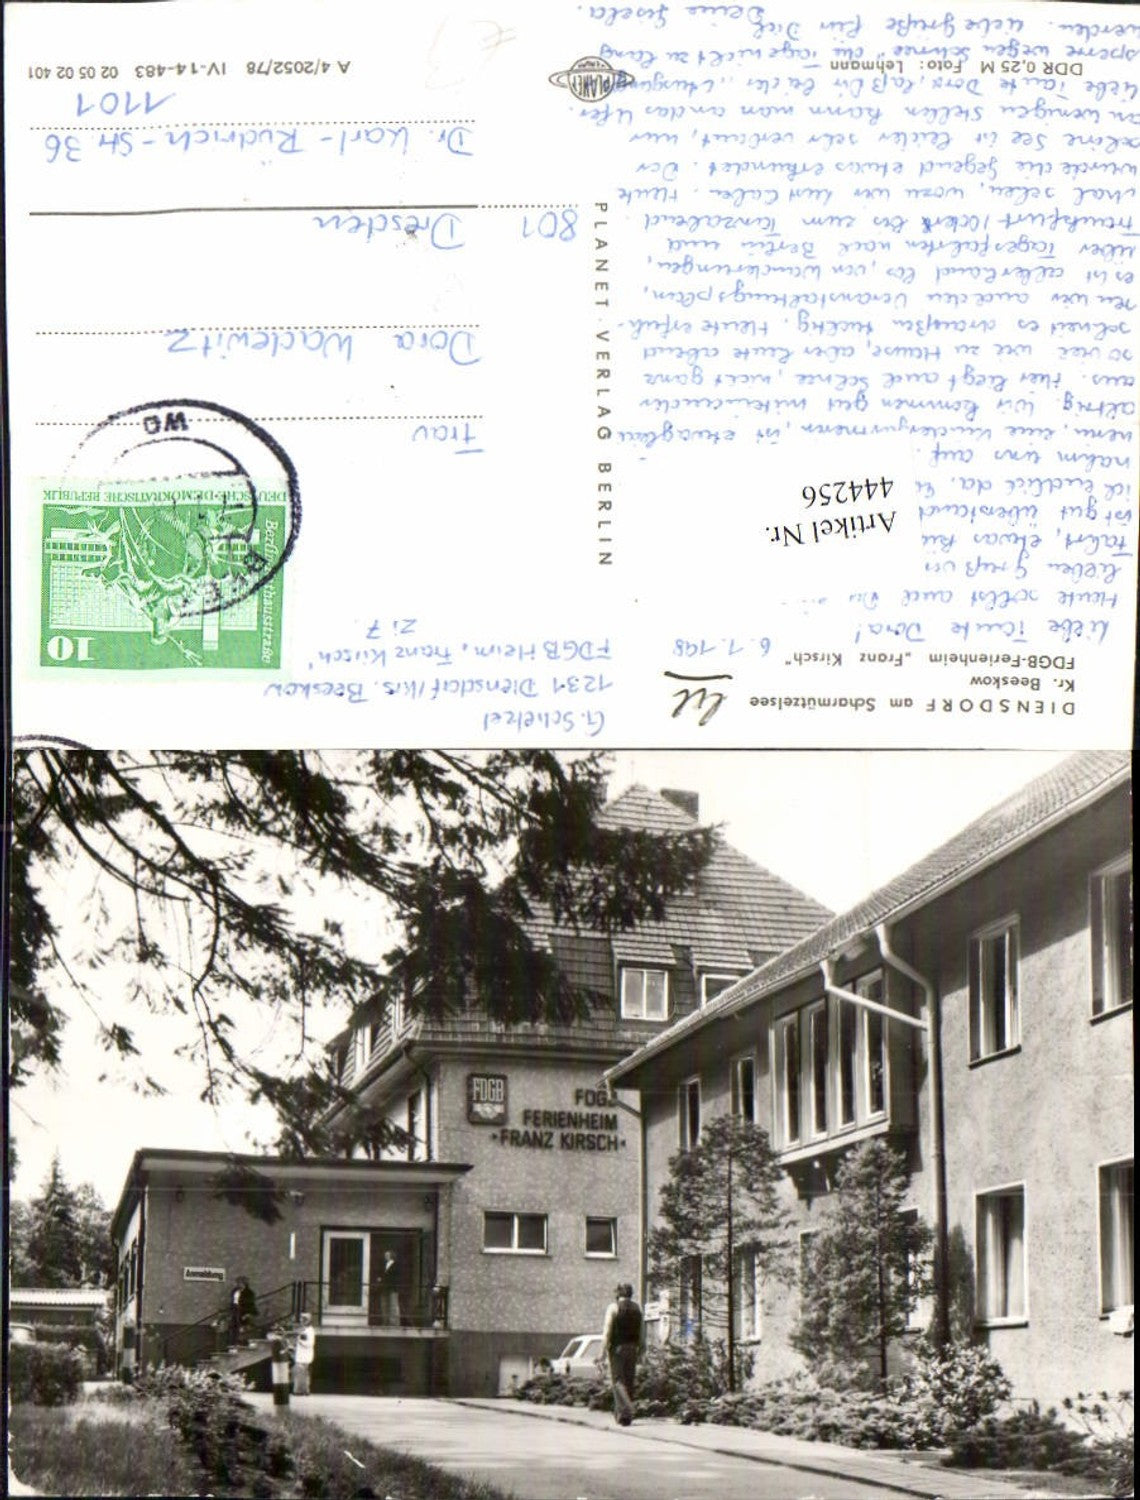 DIENSDORF am Scharmützelsee
Kr. Beeskow
FDGB-Ferienheim „Franz Kirsch"
G. Schetzel
1231 Diensdorf/Krs. Beeskow
FDGB Heim „Franz Kirsch"
Zi 7.
6. 1. 198
Liebe Tante Dora!
Heute sollst auch Du
lieben Gruß
Fahrt, etwas
ist gut überstand
ich endlich da.
nahm uns auf.
nenn, eine Kindergärtnerin, ist etwa
altrig. Wir kommen gut miteinander
aus. Hier liegt auch Schnee, nicht ganz
so viel wie zu Hause, aber heute abend
schneit es draußen tüchtig. Heute erfuh-
ren wir auch den Veranstaltungsplan,
es ist allerhand los, von Wanderungen,
über Tagesfahrten nach Berlin und
Frankfurt/Oder bis zum Tanzabend
mal sehen, wozu wir Lust haben. Heute
wurde die Gegend etwas erkundet. Der
schöne See ist leider sehr verbaut, nur
an wenigen Stellen kann man an das Ufer.
Liebe Tante Dora, laß Dir bei der
sperre wegen Schnee" die Tage nicht zu lang
werden. Liebe Grüße für Dich
Deine Gisela.
Artikel Nr.
444256
PLANET · VERLAG BERLIN
10
Berlin Rathausstraße
DEUTSCHE DEMOKRATISCHE REPUBLIK
Frau
Dora Wadewitz
801 Dresden
Dr. Karl-Rüdrich-Str. 36
1101
DDR 0,25 M Foto: Lehmann
PLANET
A 4/2052/78 IV-14-483 02 05 02 401
FDGB
FDGB
FERIENHEIM
·FRANZ KIRSCH·
Anmeldung